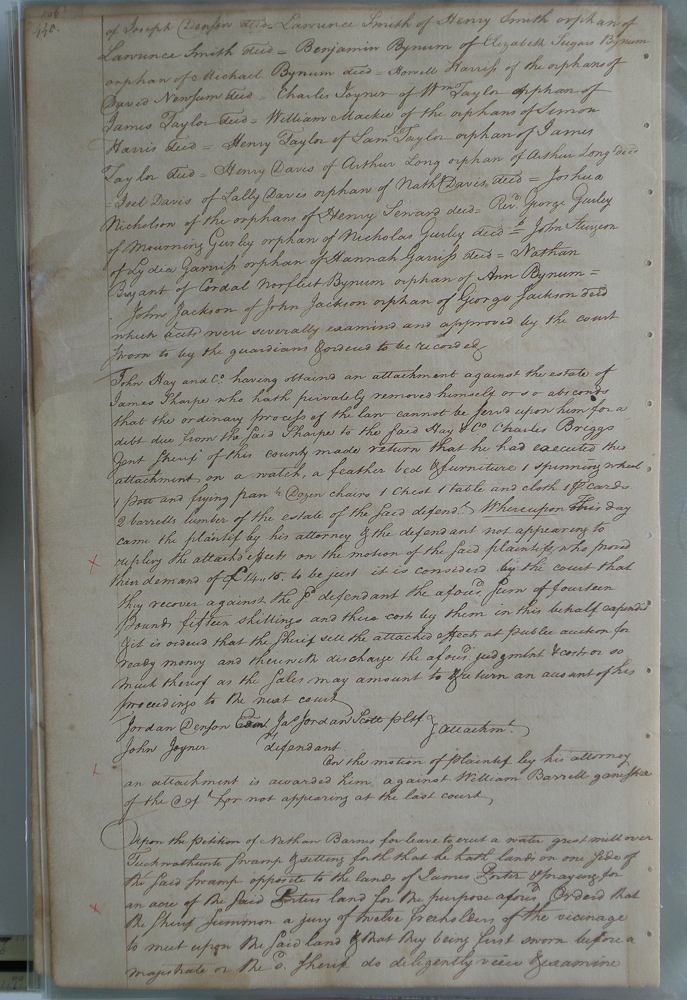 110.
of Joseph Denson decd = Lawrence Smith of Henry Smith orphan of
Lawrence Smith decd = Benjamin Bynum of Elizabeth Sugars Bynum
orphan of Michael Bynum decd = Howell Harris of the orphans of
David Newsum decd = Charles Joyner of Wm Taylor orphan of
James Taylor decd = William Mackie of the orphans of Simon
Harris decd = Henry Taylor of Sam Taylor orphan of James
Taylor decd = Henry Davis of Arthur Long orphan of Arthur Long decd
= Joel Davis of Sally Davis orphan of Nathl Davis, decd = Joshua
Nicholson of the orphans of Henry Seward decd = Revd. George Gurley
of Mourning Gurley orphan of Nicholas Gurley decd = John Sturgeon
of Lydia Garriss orphan of Hannah Garriss decd = Nathan
Bryant of Cordal Norfleet Bynum orphan of Ann Bynum =
John Jackson of John Jackson orphan of George Jackson decd
which accts were severally examind and approved by the court
sworn to by the guardians & ordered to be recorded
John Hay and Co. having obtaind an attachment against the estate of
James Tharpe who hath privately removed himself or so absconds
that the ordinary process of the law cannot be servd upon him for a
debt due from the said Tharpe to the said Hay & Co Charles Briggs
Gent Sherif of this county made return that he had executed the
attachment on a watch, a feather bed & furniture 1 spinning wheel
1 pott and frying pan ½ Dozen chairs 1 Chest 1 table and cloth 1 pr cards
2 barrells lumber of the estate of the said defendt. Whereupon this day
came the plaintif by his attorney & the defendant not appearing to
replevy the attachd effects on the motion of the said plaintiffs, who proved
their demand of £14..15. to be just it is considerd by the court that
they recover against the sd defendant the aforesd sum of fourteen
Pounds fifteen shillings and their costs by them in this behalf expended
& it is ordered that the Sherif sell the attached effects at publec auction for
ready money and therewith discharge the aforesd judgment & costs or so
much thereof as the sales may amount to & return an account of his
proceedings to the next court
Jordan Denson Jas Jordan Scott pltf.
John Joyner defendant. attachmt.
On the motion of plaintif by his attorney
an attachment is awarded him against William Barrett garnishee
of the Deft for not appearing at the last court
Upon the Petition of Nathan Barnes for leave to erect a water grist mill over
swamp & setting forth that he hath lands on one side of
the said swamp opposite to the lands of James Porter & praying for
an acre of the said Porters land for the purpose aforesd Ordered that
the Sherif summon a jury of twelve freeholders of the vicinage
to meet upon the said land & that they being first sworn before a
magistrate or the sd. Sherif do diligently view & examine